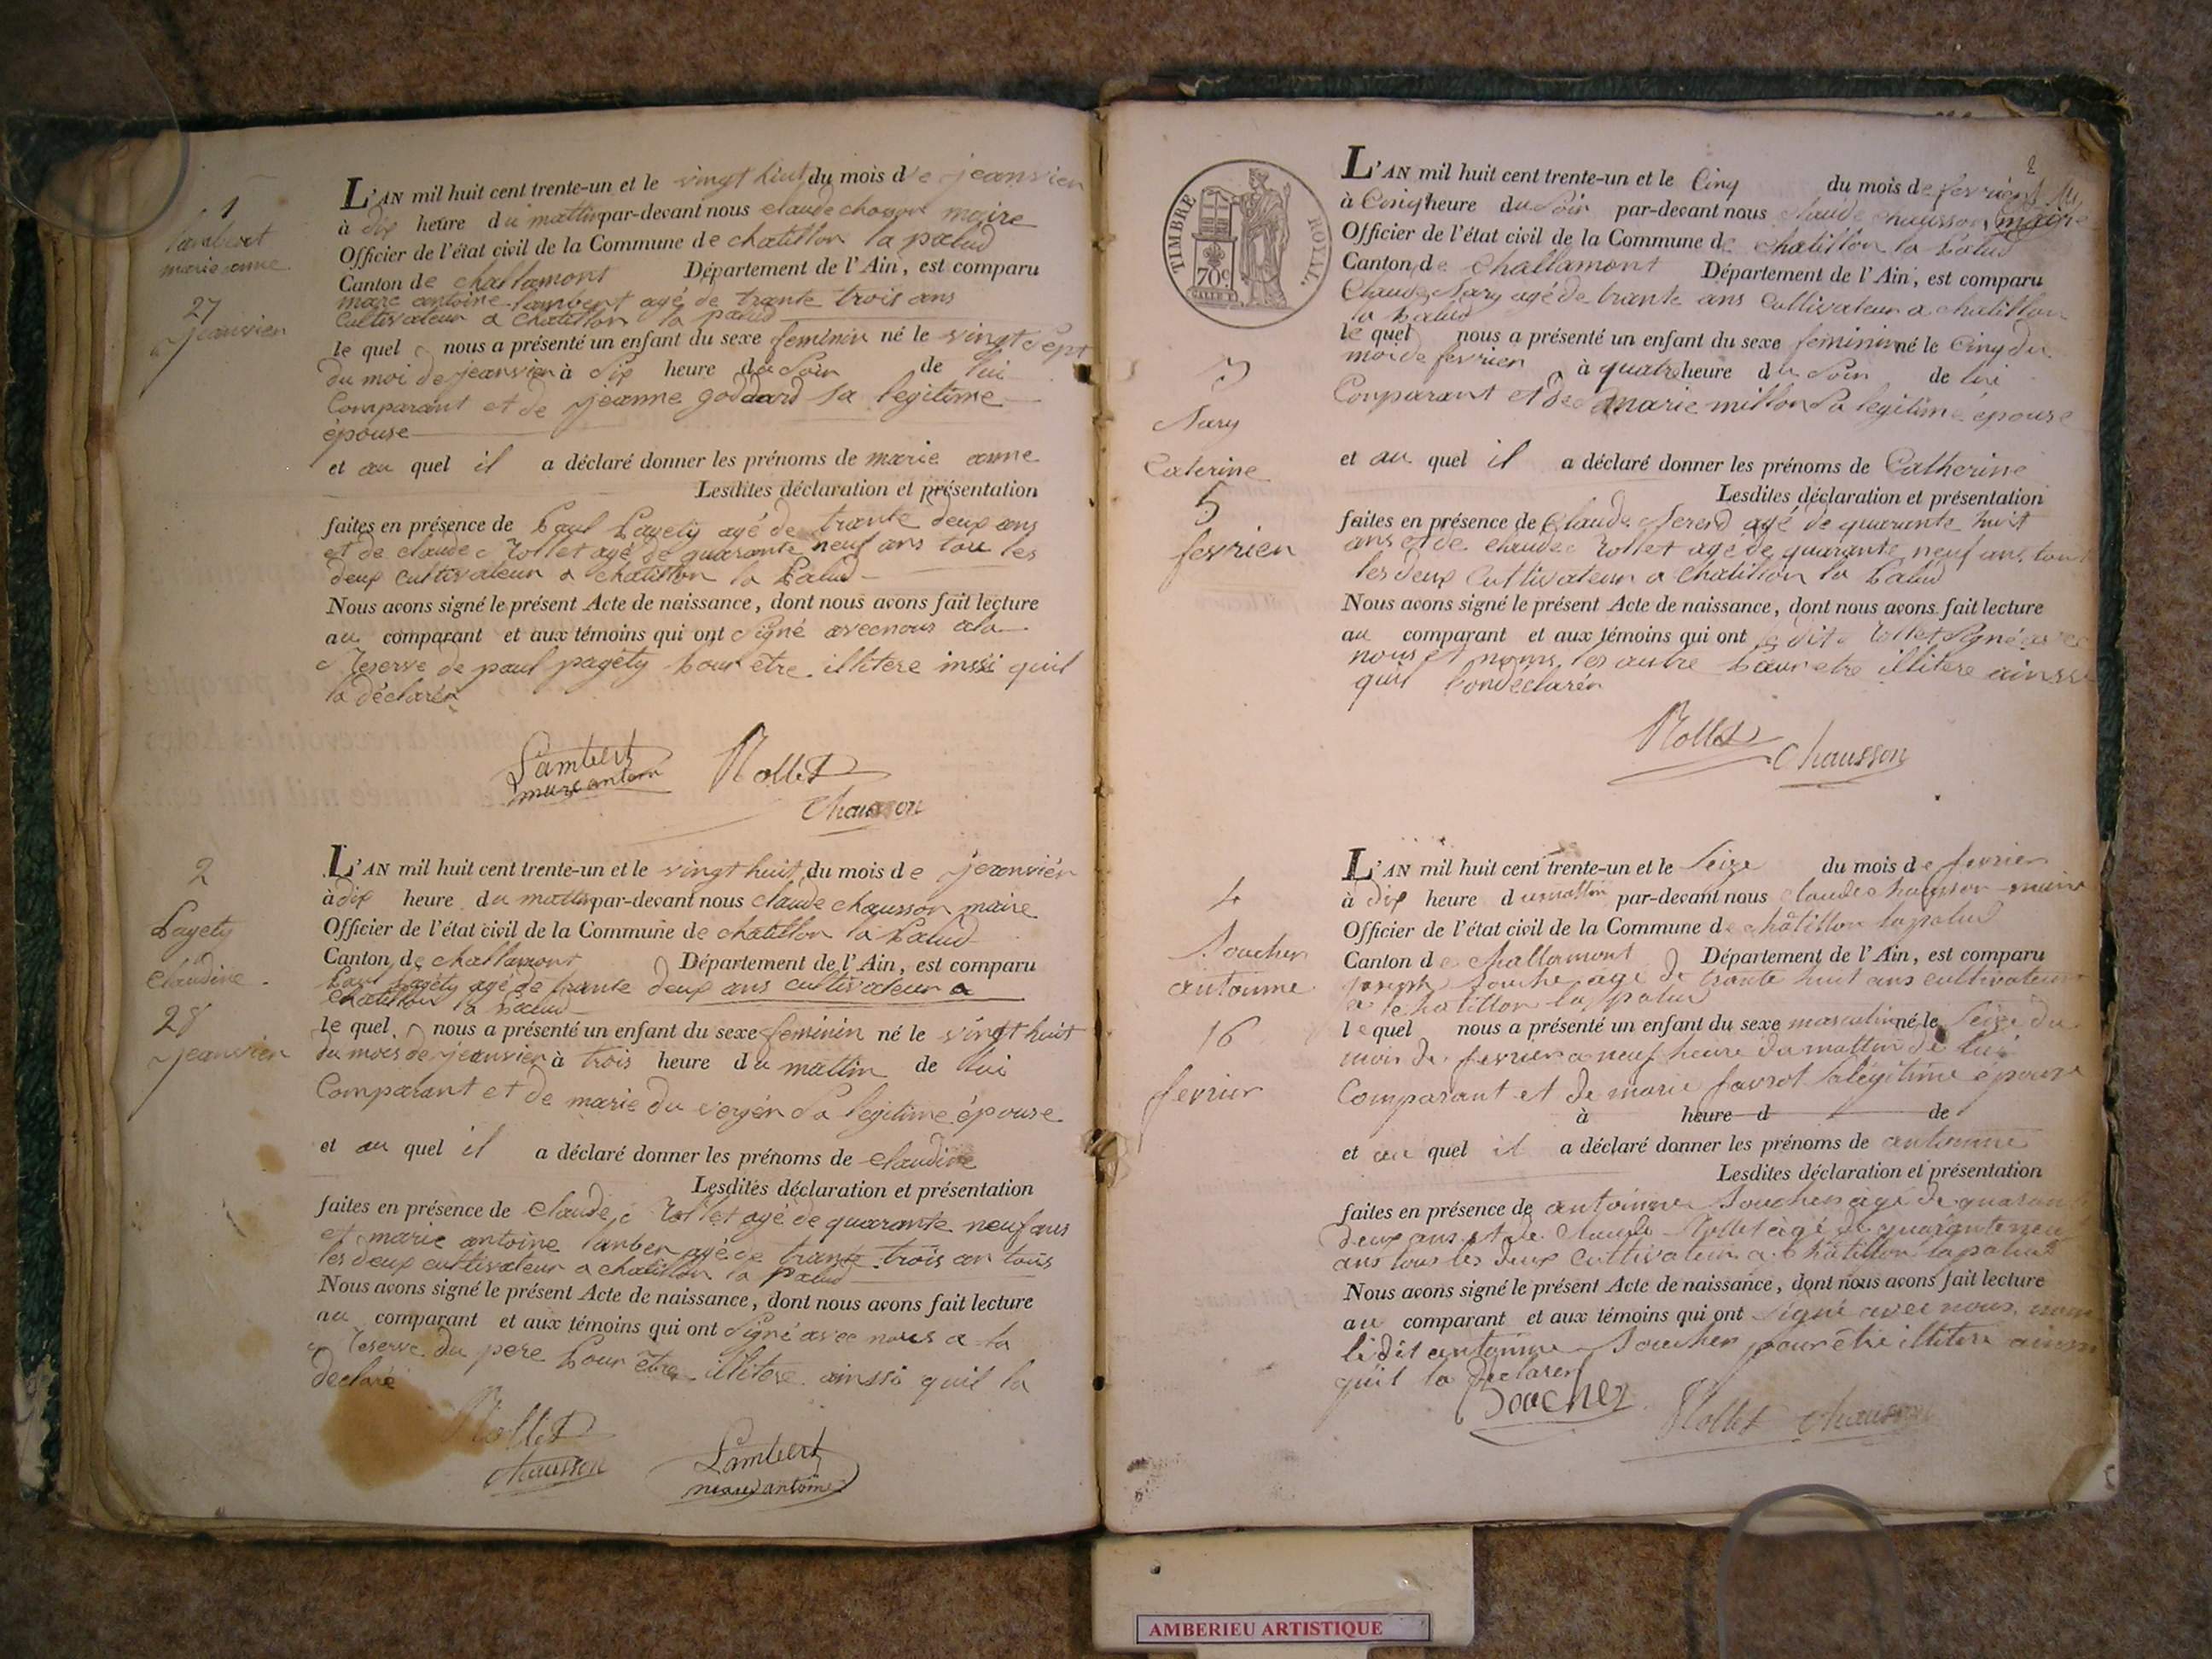 1
lambert
marie anne
27
jeanvier
L'AN mil huit cent trente-un et le vingt huit du mois de jeanvier
à dix heure du mattin par-devant nous claude chosson maire
Officier de l'état civil de la Commune de chatillon la palud
Canton de challamont Département de l'Ain, est comparu
marc antoine lambert agé de trante trois ans
Cultivateur a chatillon la palud
le quel nous a présenté un enfant du sexe feminin né le vingt sept
du moi de jeanvier à Six heure du Soir de lui
Comparant et de jeanne goddard sa legitime
épouse
et au quel il a déclaré donner les prénoms de marie anne
Lesdites déclaration et présentation
faites en présence de Paul Pagety agé de trante deux ans
et de claude Rollet agé de quarante neuf ans tou les
deux cultivateur a chatillon la Palud
Nous avons signé le présent Acte de naissance, dont nous avons fait lecture
au comparant et aux témoins qui ont Signé avec nous a la
Reserve de paul pagéty pour être illitere inssi quil
la déclarér
Lambert Rollet
marc antoin
Chausson
2
Pagety
Claudine
28
jeanvier
L'AN mil huit cent trente-un et le vingt huit du mois de jeanviér
à dix heure du mattin par-devant nous claude chausson maire
Officier de l'état civil de la Commune de chatillon la Palud
Canton de challamont Département de l'Ain, est comparu
Paul pagéty agé de trante deux ans cultivateur a
chatillon la Palud
le quel nous a présenté un enfant du sexe feminin né le vingt huit
du mois de jeanvier à trois heure du mattin de lui
Comparant et de marie du veryér Sa legitime épouse
et au quel il a déclaré donner les prénoms de claudine
Lesdites déclaration et présentation
faites en présence de claude Rollet agé de quarante neuf ans
et marie antoine lanber agé de trante trois an tous
les deux cultivateur a chatillon la palud
Nous avons signé le présent Acte de naissance, dont nous avons fait lecture
au comparant et aux témoins qui ont Signé avec nous a la
Reserve du pere Pour être illitere ainssi quil la
declaré
Rollet
chausson Lambert
marc antoine
2
TIMBRE ROYAL
70c
3
Nary
Caterine
5
fevrier
L'AN mil huit cent trente-un et le Cinq du mois de fevrier
à Cinq heure du Soir par-devant nous claude chausson maire
Officier de l'état civil de la Commune de chatillon la Palud
Canton de Challamont Département de l'Ain, est comparu
Claude Nary agé de trante ans Cultivateur a chatillon
la Palud
le quel nous a présenté un enfant du sexe feminin né le Cinq du
moi de fevrier à quatre heure du Soir de lui
Comparant et de marie millon Sa legitime épouse
et au quel il a déclaré donner les prénoms de Catherine
Lesdites déclaration et présentation
faites en présence de Claude agé de quarante huit
ans et de claude Rollet agé de quarante neuf ans tout
les deux Cultivateur a Chatillon la Palud
Nous avons signé le présent Acte de naissance, dont nous avons fait lecture
au comparant et aux témoins qui ont le dit Rollet Signé avec
nous les autre pour etre illitere ainssi
quil l'on declarér
Rollet
Chausson
4
Soucher
antoinne
16
fevrier
L'AN mil huit cent trente-un et le Seize du mois de fevrier
à dix heure du mattin par-devant nous claude chausson maire
Officier de l'état civil de la Commune de châtillon la palud
Canton de challamont Département de l'Ain, est comparu
joseph Souche agé de trante huit ans cultivateur
a chatillon la palud
le quel nous a présenté un enfant du sexe masculin né le Seize du
mois de fevrier a neuf heure du mattin de lui
Comparant et de marie favrot Sa légitime épouse
à heure d de
et au quel il a déclaré donner les prénoms de antoinne
Lesdites déclaration et présentation
faites en présence de antoinne Soucher agé de quarante
deux ans et de Claude Rollet agé de quarante neuf
ans tous les deux cultivateur a Châtillon la palud
Nous avons signé le présent Acte de naissance, dont nous avons fait lecture
au comparant et aux témoins qui ont Signé avec nous, non
le dit antoinne Soucher pour être illitere ainssi
qu'il la declarer
Soucher Rollet chausson
AMBERIEU ARTISTIQUE